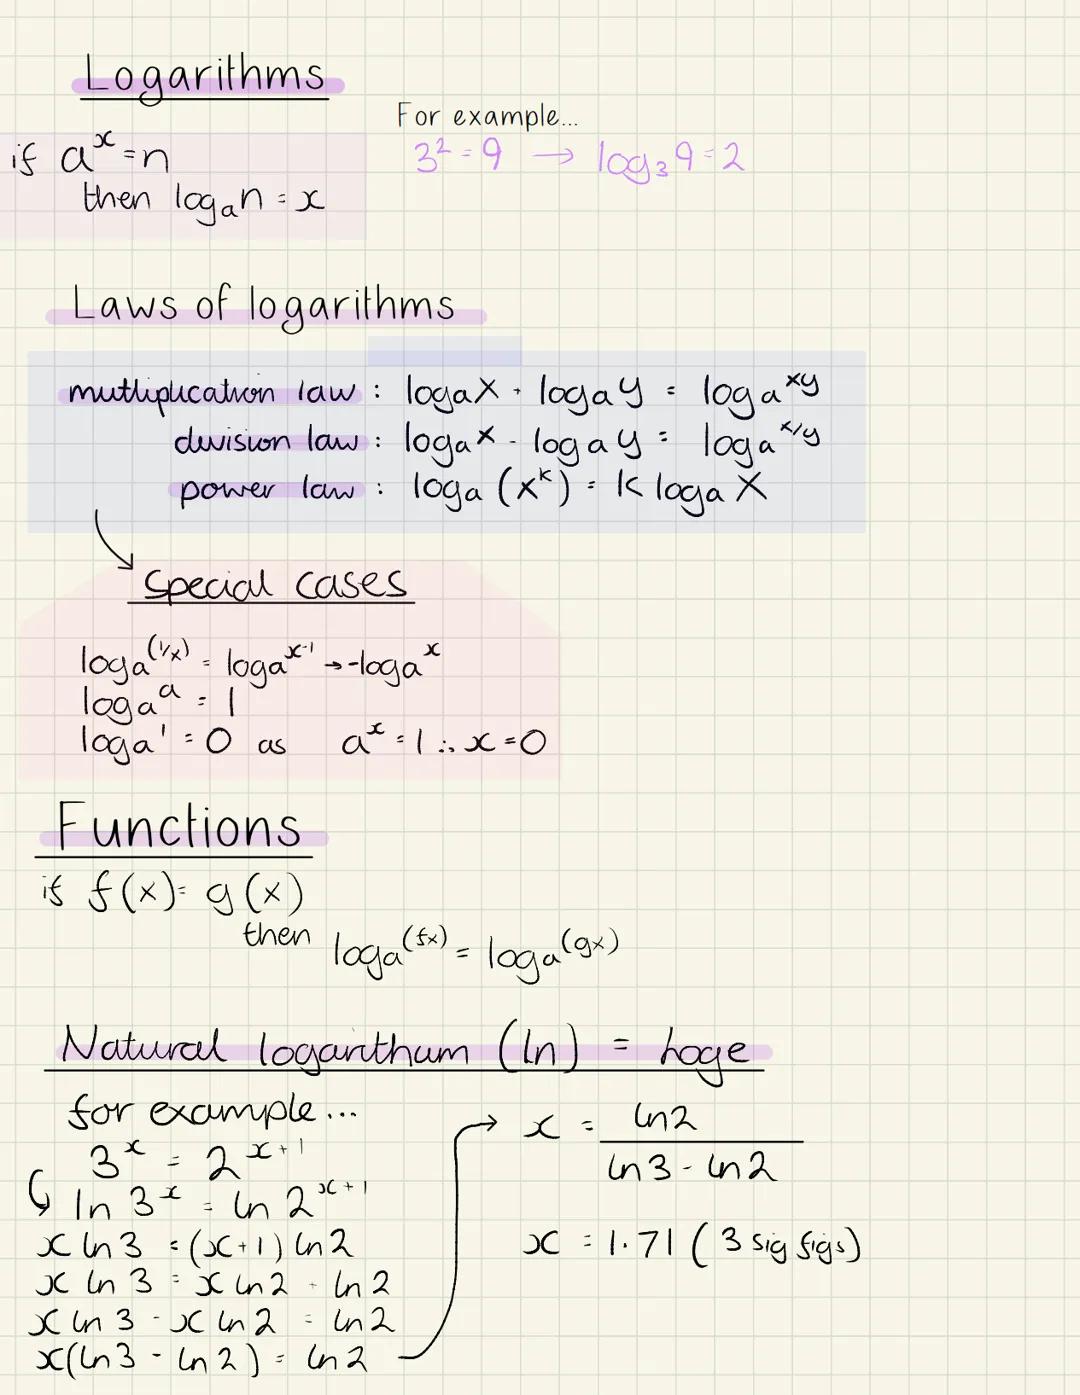 Logarithms
For example...
if aˣ = n
3² = 9 → log₃9 = 2
then logₐn = x
Laws of logarithms
mutliplication law : logₐx + logₐy = logₐxy
division law : logₐx - logₐy = logₐx/y
power law : logₐ(xᵏ) = k logₐx
special cases
logₐ(1/x) = logₐx⁻¹ → -logₐx
logₐa = 1
logₐ1 = 0 as aˣ = 1 ∴ x = 0
Functions
if f(x) = g(x)
then logₐ(fx) = logₐ(gx)
Natural logarithum (ln) = loge
for example...
3ˣ = 2ˣ⁺¹
ln 3ˣ = ln 2ˣ⁺¹
x ln 3 = (x+1) ln 2
x ln 3 = x ln 2 + ln 2
x ln 3 - x ln 2 = ln 2
x(ln 3 - ln 2) = ln 2
→ x = ln 2 / ln 3 - ln 2
x = 1.71 (3 sig figs)